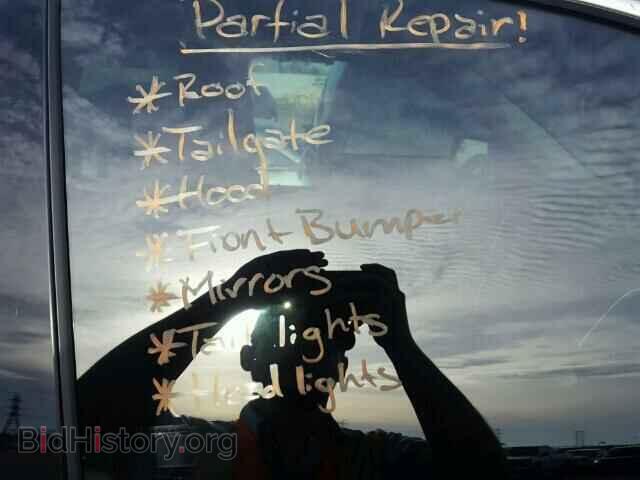 Partial Repair!
* Roof
* Tailgate
* Hood
* Front Bumper
* Mirrors
* Tail lights
* Head lights
BidHistory.org